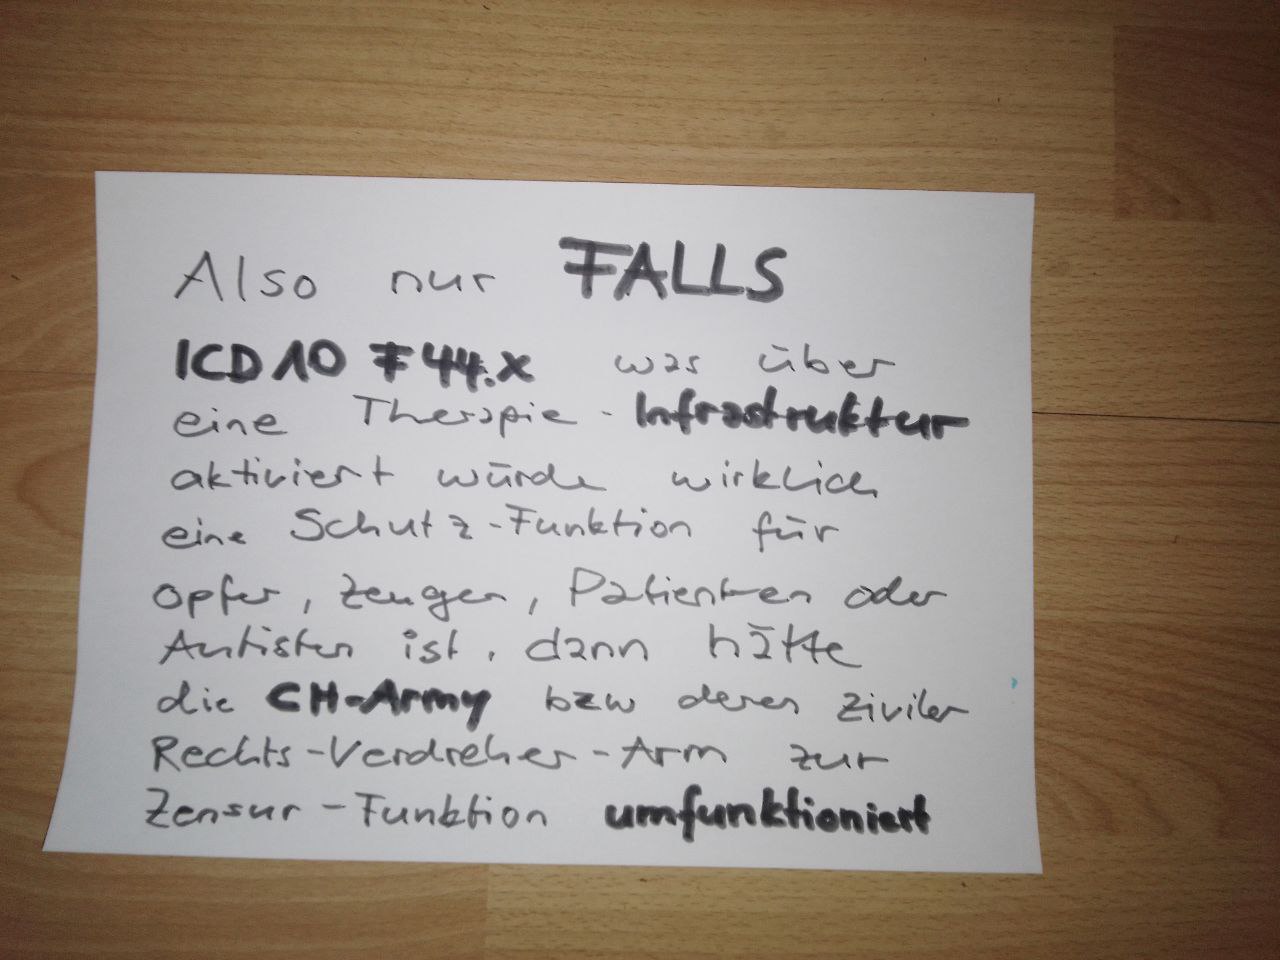 Also nur FALLS
ICD10 F44.x was über
eine Therapie-Infrastruktur
aktiviert würde wirklich
eine Schutz-Funktion für
Opfer, Zeugen, Patienten oder
Autisten ist, dann hätte
die CH-Army bzw deren ziviler
Rechts-Verdreher-Arm zur
Zensur-Funktion umfunktioniert